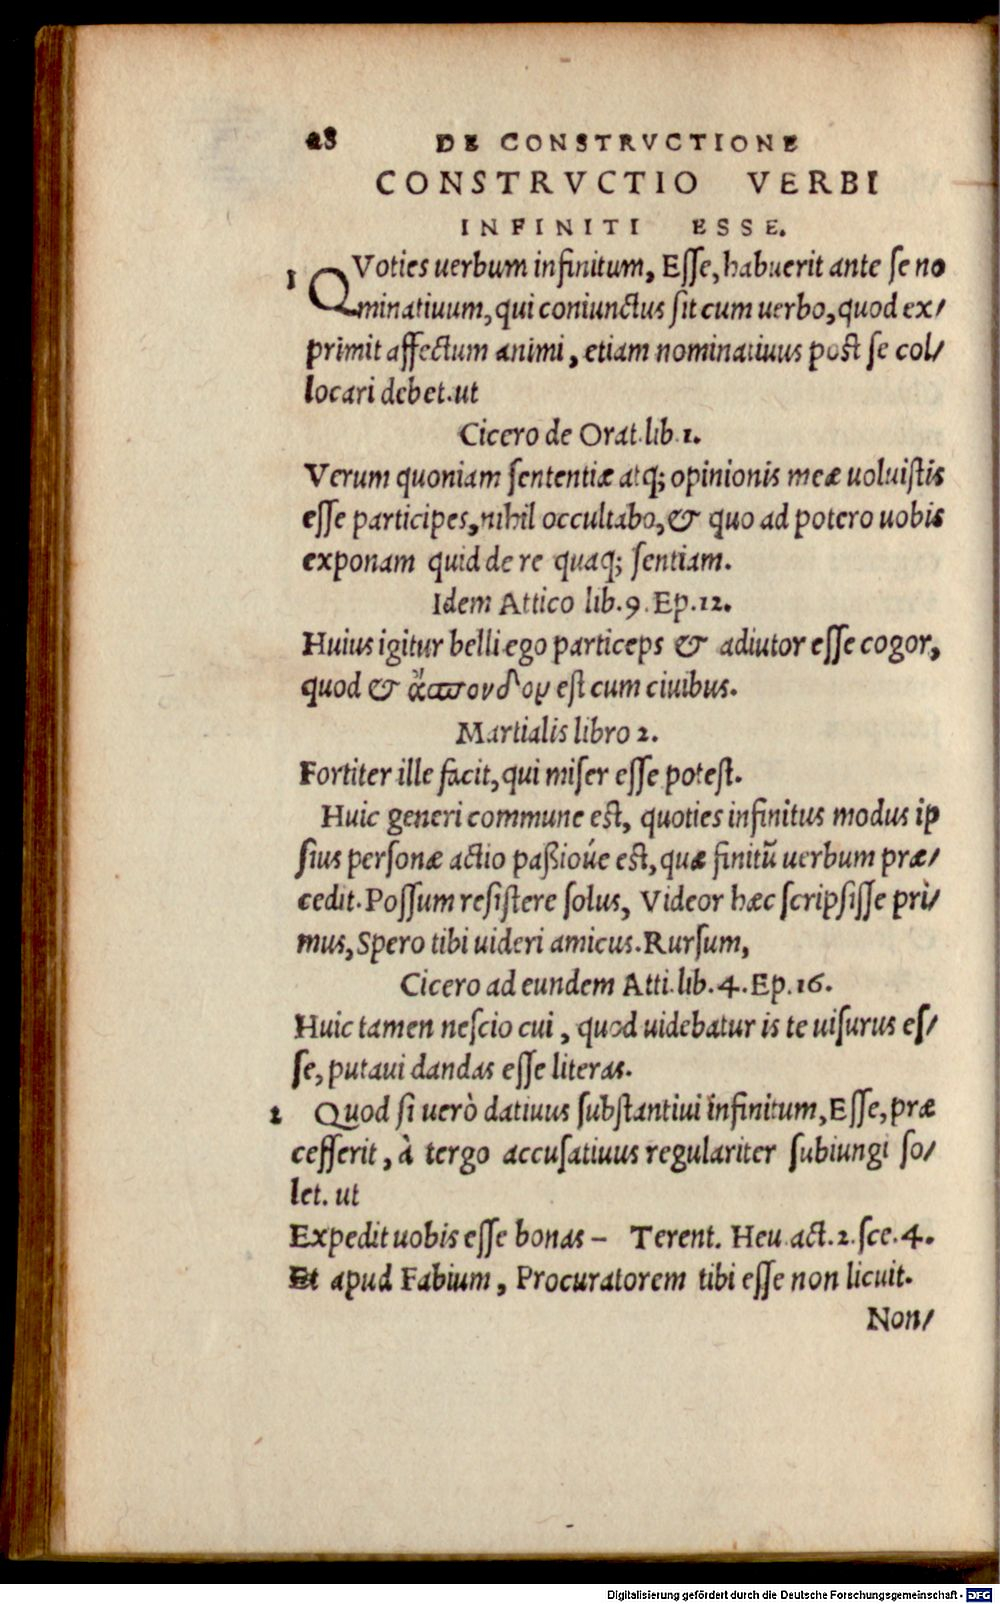 28 DE CONSTRVCTIONE
CONSTRVCTIO VERBI
INFINITI ESSE.
1 QVoties uerbum infinitum, Eſſe, habuerit ante ſe no
minatiuum, qui coniunctus ſit cum uerbo, quod ex/
primit affectum animi, etiam nominatiuus poſt ſe col/
locari debet. ut
Cicero de Orat. lib. 1.
Verum quoniam ſententiæ atq; opinionis meæ uoluiſtis
eſſe participes, nihil occultabo, & quo ad potero uobis
exponam quid de re quaq; ſentiam.
Idem Attico lib. 9. Ep. 12.
Huius igitur belli ego particeps & adiutor eſſe cogor,
quod & ἄσπονδον eſt cum ciuibus.
Martialis libro 2.
Fortiter ille facit, qui miſer eſſe poteſt.
Huic generi commune eſt, quoties infinitus modus ip
ſius perſonæ actio paßioúe eſt, quæ finitũ uerbum præ/
cedit. Poſſum reſiſtere ſolus, Videor hæc ſcripſiſſe pri/
mus, Spero tibi uideri amicus. Rurſum,
Cicero ad eundem Atti. lib. 4. Ep. 16.
Huic tamen neſcio cui, quod uidebatur is te uiſurus eſ/
ſe, putaui dandas eſſe literas.
2 Quod ſi uerò datiuus ſubſtantiui infinitum, Eſſe, præ
ceſſerit, à tergo accuſatiuus regulariter ſubiungi ſo/
let. ut
Expedit uobis eſſe bonas – Terent. Heu. act. 2. ſce. 4.
Et apud Fabium, Procuratorem tibi eſſe non licuit.
Non/
Digitalisierung gefördert durch die Deutsche Forschungsgemeinschaft - DFG